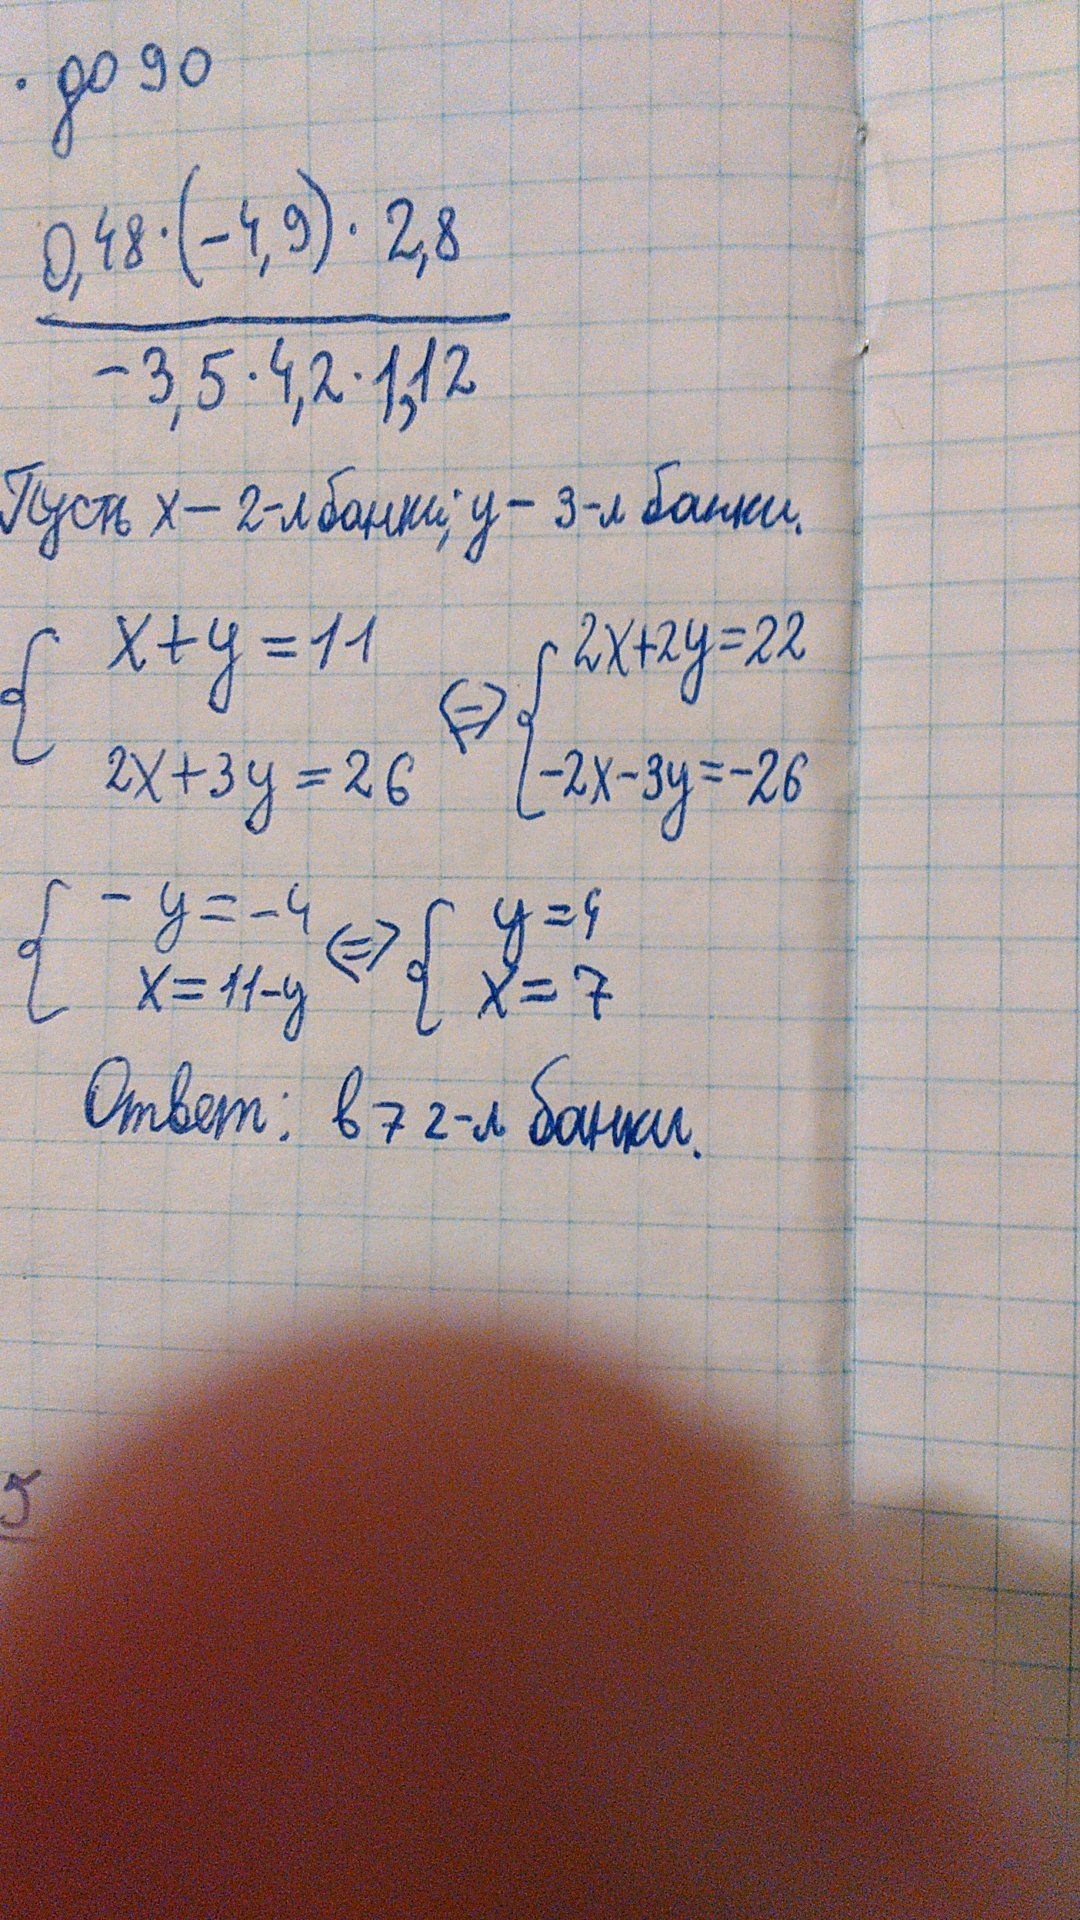 · до 90
0,48·(-4,9)· 2,8
-3,5·4,2·1,12
Пусть x – 2-л банки; y – 3-л банки.
{ x+y=11 <=> { 2x+2y=22
2x+3y=26 -2x-3y=-26
{ -y=-4 <=> { y=4
x=11-y x=7
Ответ: в 7 2-л банки.
5